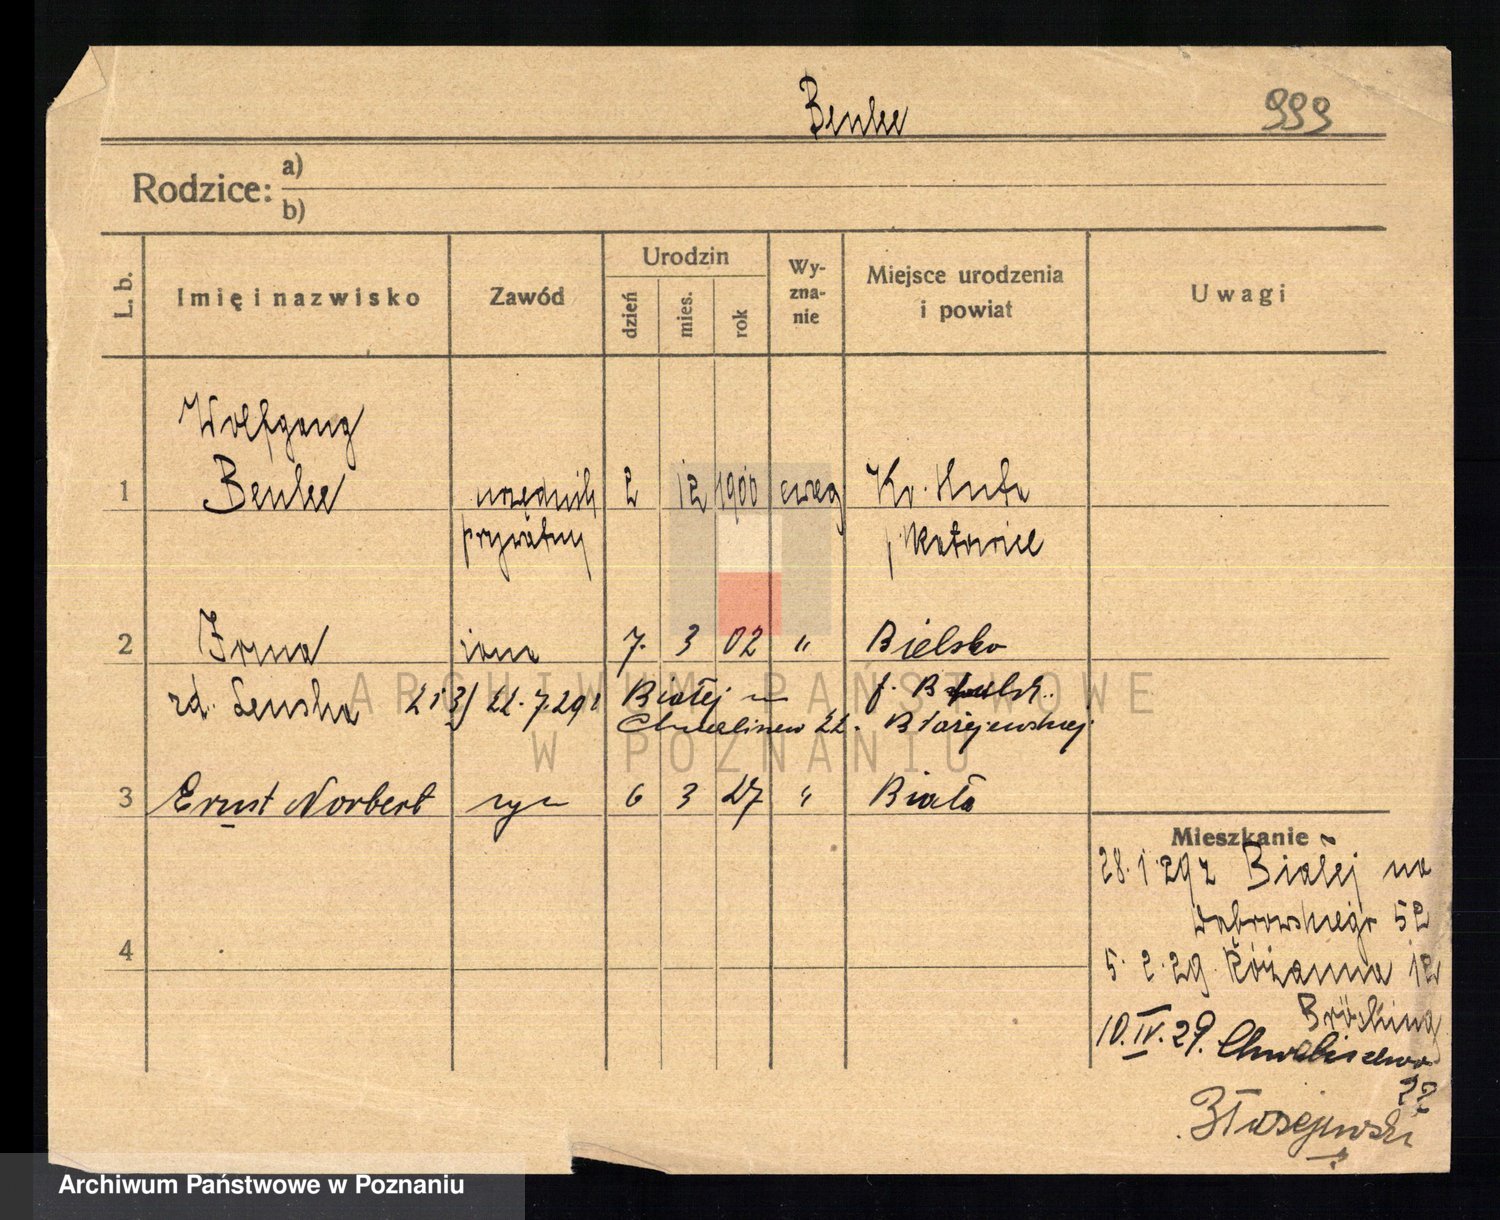 Benke
999
Rodzice: a)
b)
L. b.
Imię i nazwisko
Zawód
Urodzin
dzień
mies.
rok
Wy-
zna-
nie
Miejsce urodzenia
i powiat
Uwagi
Wolfgang
1 Benke urzędnik 2 12 1900 ewag Kr. Huta
prywatny p. Katowice
2 Irma żona 7. 3 02 " Bielsko
zd. Lenska 2i3) 22.7.29 z Białej na
Chwaliszewo 22. Błażejewskiej
ARCHIWUM PAŃSTWOWE
W POZNANIU
3 Ernst Norbert syn 6 3 27 " Biała
Mieszkanie
28.1.29 z Białej na
Dąbrowskiego 52
4
5.2.29. Różanna 12
10.IV.29. Chwaliszewo
22
Błażejewski
Archiwum Państwowe w Poznaniu